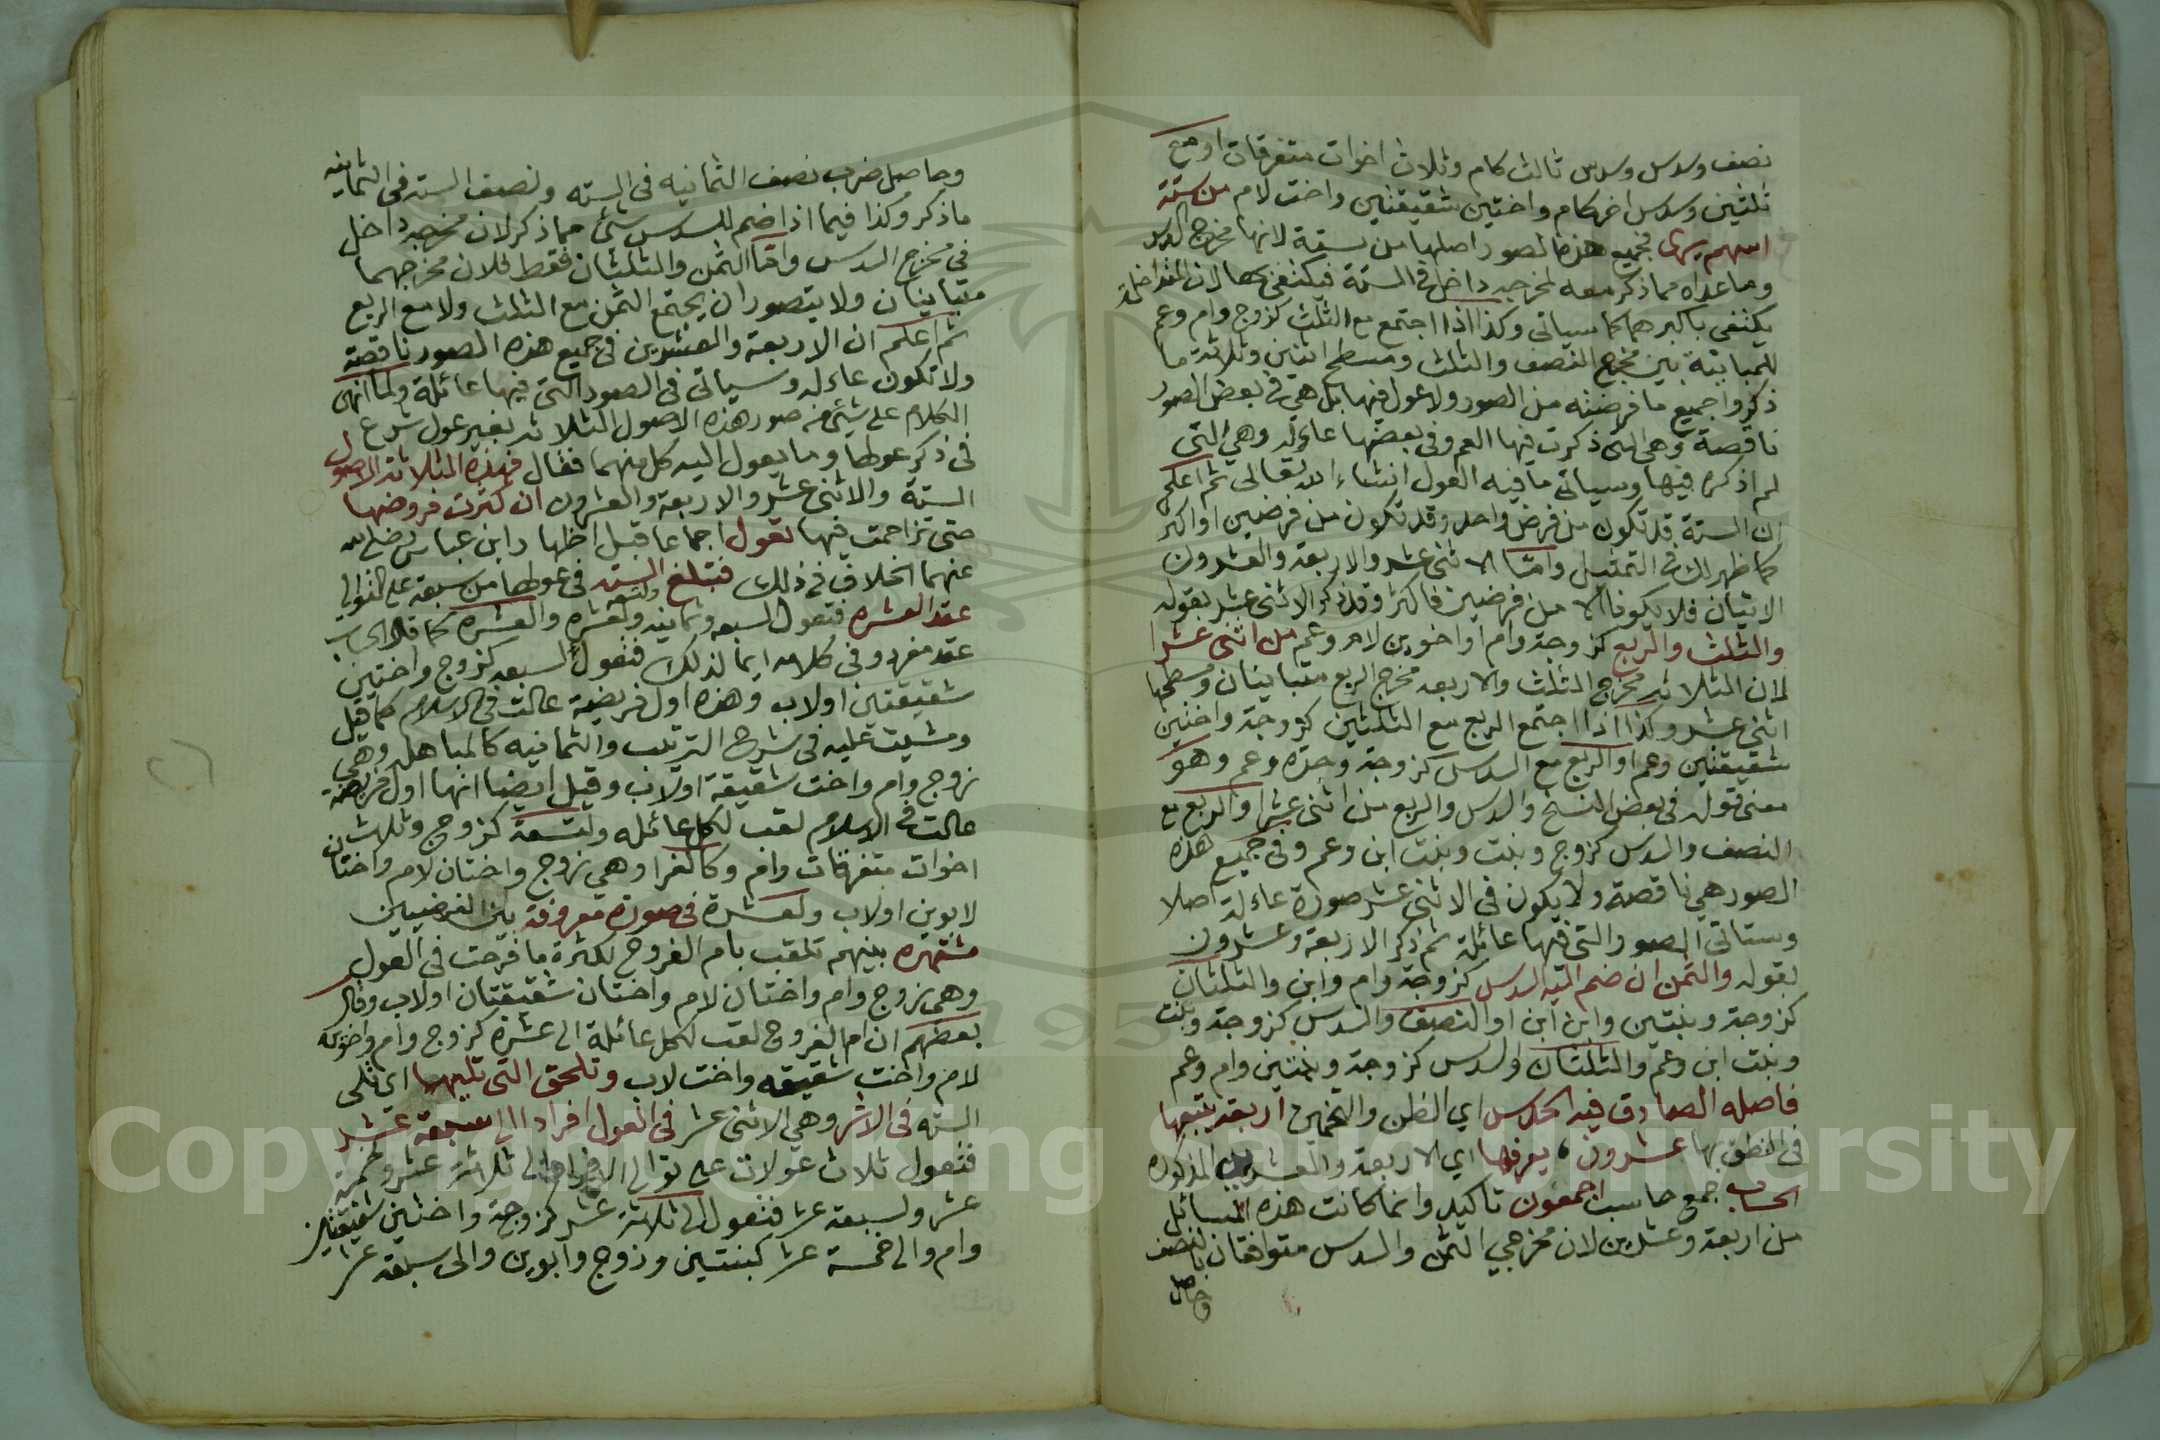 نصف وسدس وسدس ثالث كام وثلاث اخوات متفرقات او مع
ثلثين وسدس اخر كام واختين شقيقتين واخت لام من ستة
اسهم يرى فجميع هذه الصور اصلها من ستة لانها مخرج السدس
وما عداه مما ذكر معه لمخرجه داخل في الستة فيكتفى بها لان المتداخلة
يكتفى باكبرهما كما سياتي وكذا اذا اجتمع مع الثلث كزوج وام وعم
للمباينة بين مخرج النصف والثلث ومسطح اثنين وثلاثة ما
ذكروا جميع ما فرضته من الصور ولا عول فيها بل هي في بعض الصور
ناقصة وهي التي ذكرت فيها العم وفي بعضها عادلة وهي التي
لم اذكره فيها وسياتي ما فيه العول انشاء الله تعالى ثم اعلم
ان الستة قد تكون من فرض واحد وقد تكون من فرضين او اكثر
كما ظهر لك في التمثيل واما الاثنى عشر والاربعة والعشرون
الاتيان فلا يكونا الا من فرضين فاكثر وقد ذكر الاثنى عشر بقوله
والثلث والربع كزوجة وام واخوين لام وعم من اثنى عشرا
لان الثلاثة مخرج الثلث والاربعة مخرج الربع متباينان ومسطحها
اثنى عشر وكذا اذا اجتمع الربع مع الثلثين كزوجة واختين
شقيقتين وعم او الربع مع السدس كزوجة وجده وعم وهو
معنى قوله في بعض النسخ والسدس والربع من اثنى عشرا والربع مع
النصف والسدس كزوج وبنت وبنت ابن وعم وفي جميع هذه
الصور هي ناقصة ولا يكون في الاثنى عشر صورة عادلة اصلا
وستاتي الصور التي فيها عائلة ثم ذكر الاربعة وعشرون
بقوله والثمن ان ضم اليه السدس كزوجة وام وابن والثلثان
كزوجة وبنتين وابن ابن او النصف والسدس كزوجة وبنت
وبنت ابن وعم والثلثان والسدس كزوجة وبنتين وام وعم
فاصله الصادق فيه الحدس اي الظن والتخمين اربعة يتبعها
في النطق بها عشرون يعرفها اي الاربعة والعشرين المذكورة
الحساب جمع حاسب اجمعون تاكيد وانما كانت هذه المسائل
من اربعة وعشرين لان مخرجي الثمن والسدس متوافقان بالنصف
وحاصل
وحاصل ضرب نصف الثمانيه في السته ونصف السته في الثمانيه
ما ذكر وكذا فيما اذا ضم للسدس شئ مما ذكر لان مخرجه داخل
في مخرج السدس واما الثمن والثلثان فقط فلان مخرجهما
متباينان ولا يتصور ان يجتمع الثمن مع الثلث ولا مع الربع
ثم اعلم ان الاربعة والعشرين في جميع هذه الصور ناقصة
ولا تكون عادله وسياتي في الصور التي فيها عائلة ولما انهى
الكلام على شئ من صور هذه الاصول الثلاثة بغير عول شرع
في ذكر عولها وما يعول اليه كل منهما فقال فهذه الثلاثة الاصول
الستة والاثنى عشر والاربعة والعشرون ان كثرت فروضها
حتى تزاحمت فيها تعول اجماعا قبل اظهار ابن عباس رضي الله
عنهما الخلاف في ذلك فتبلغ السته في عولها من سبعة على التوالي
عقد العشره فتعول لسبعه وثمانيه ولتسعه والعشره كما قال اي
عقد مفرد وفي كلامه ايما لذلك فتعول لسبعه كزوج واختين
شقيقتين او لاب وهذه اول فريضة عالت في الاسلام كما قيل
ومشيت عليه في شرح الترتيب والثمانيه كالمباهله وهي
زوج وام واخت شقيقة او لاب وقيل ايضا انها اول فريضة
عالت في الاسلام لقب لكل عائله ولتسعة كزوج وثلاث
اخوات متفرقات وام وكالغرا وهي زوج واختان لام واختان
لابوين او لاب ولعشرة في صورة معروفة بين الفرضيين
مشتهره بينهم تلقب بام الفروخ لكثرة ما فرخت في العول
وهي زوج وام واختان لام واختان شقيقتان او لاب وقال
بعضهم ان ام الفروخ لقب لكل عائلة الى عشره كزوج وام واخوين
لام واخت شقيقه واخت لاب وتلحق التي تليها اي تلي
السته في الاثر وهي الاثنى عشر في العول افرادا الى سبعة عشر
فتعول ثلاث عولات على توالي الافراد الى ثلاثة عشر وخمسة
عشر ولسبعة عشر فتعول الى ثلاثة عشر كزوجة واختين شقيقتين
وام والى خمسة عشر كبنتين وزوج وابوين والى سبعة عشر